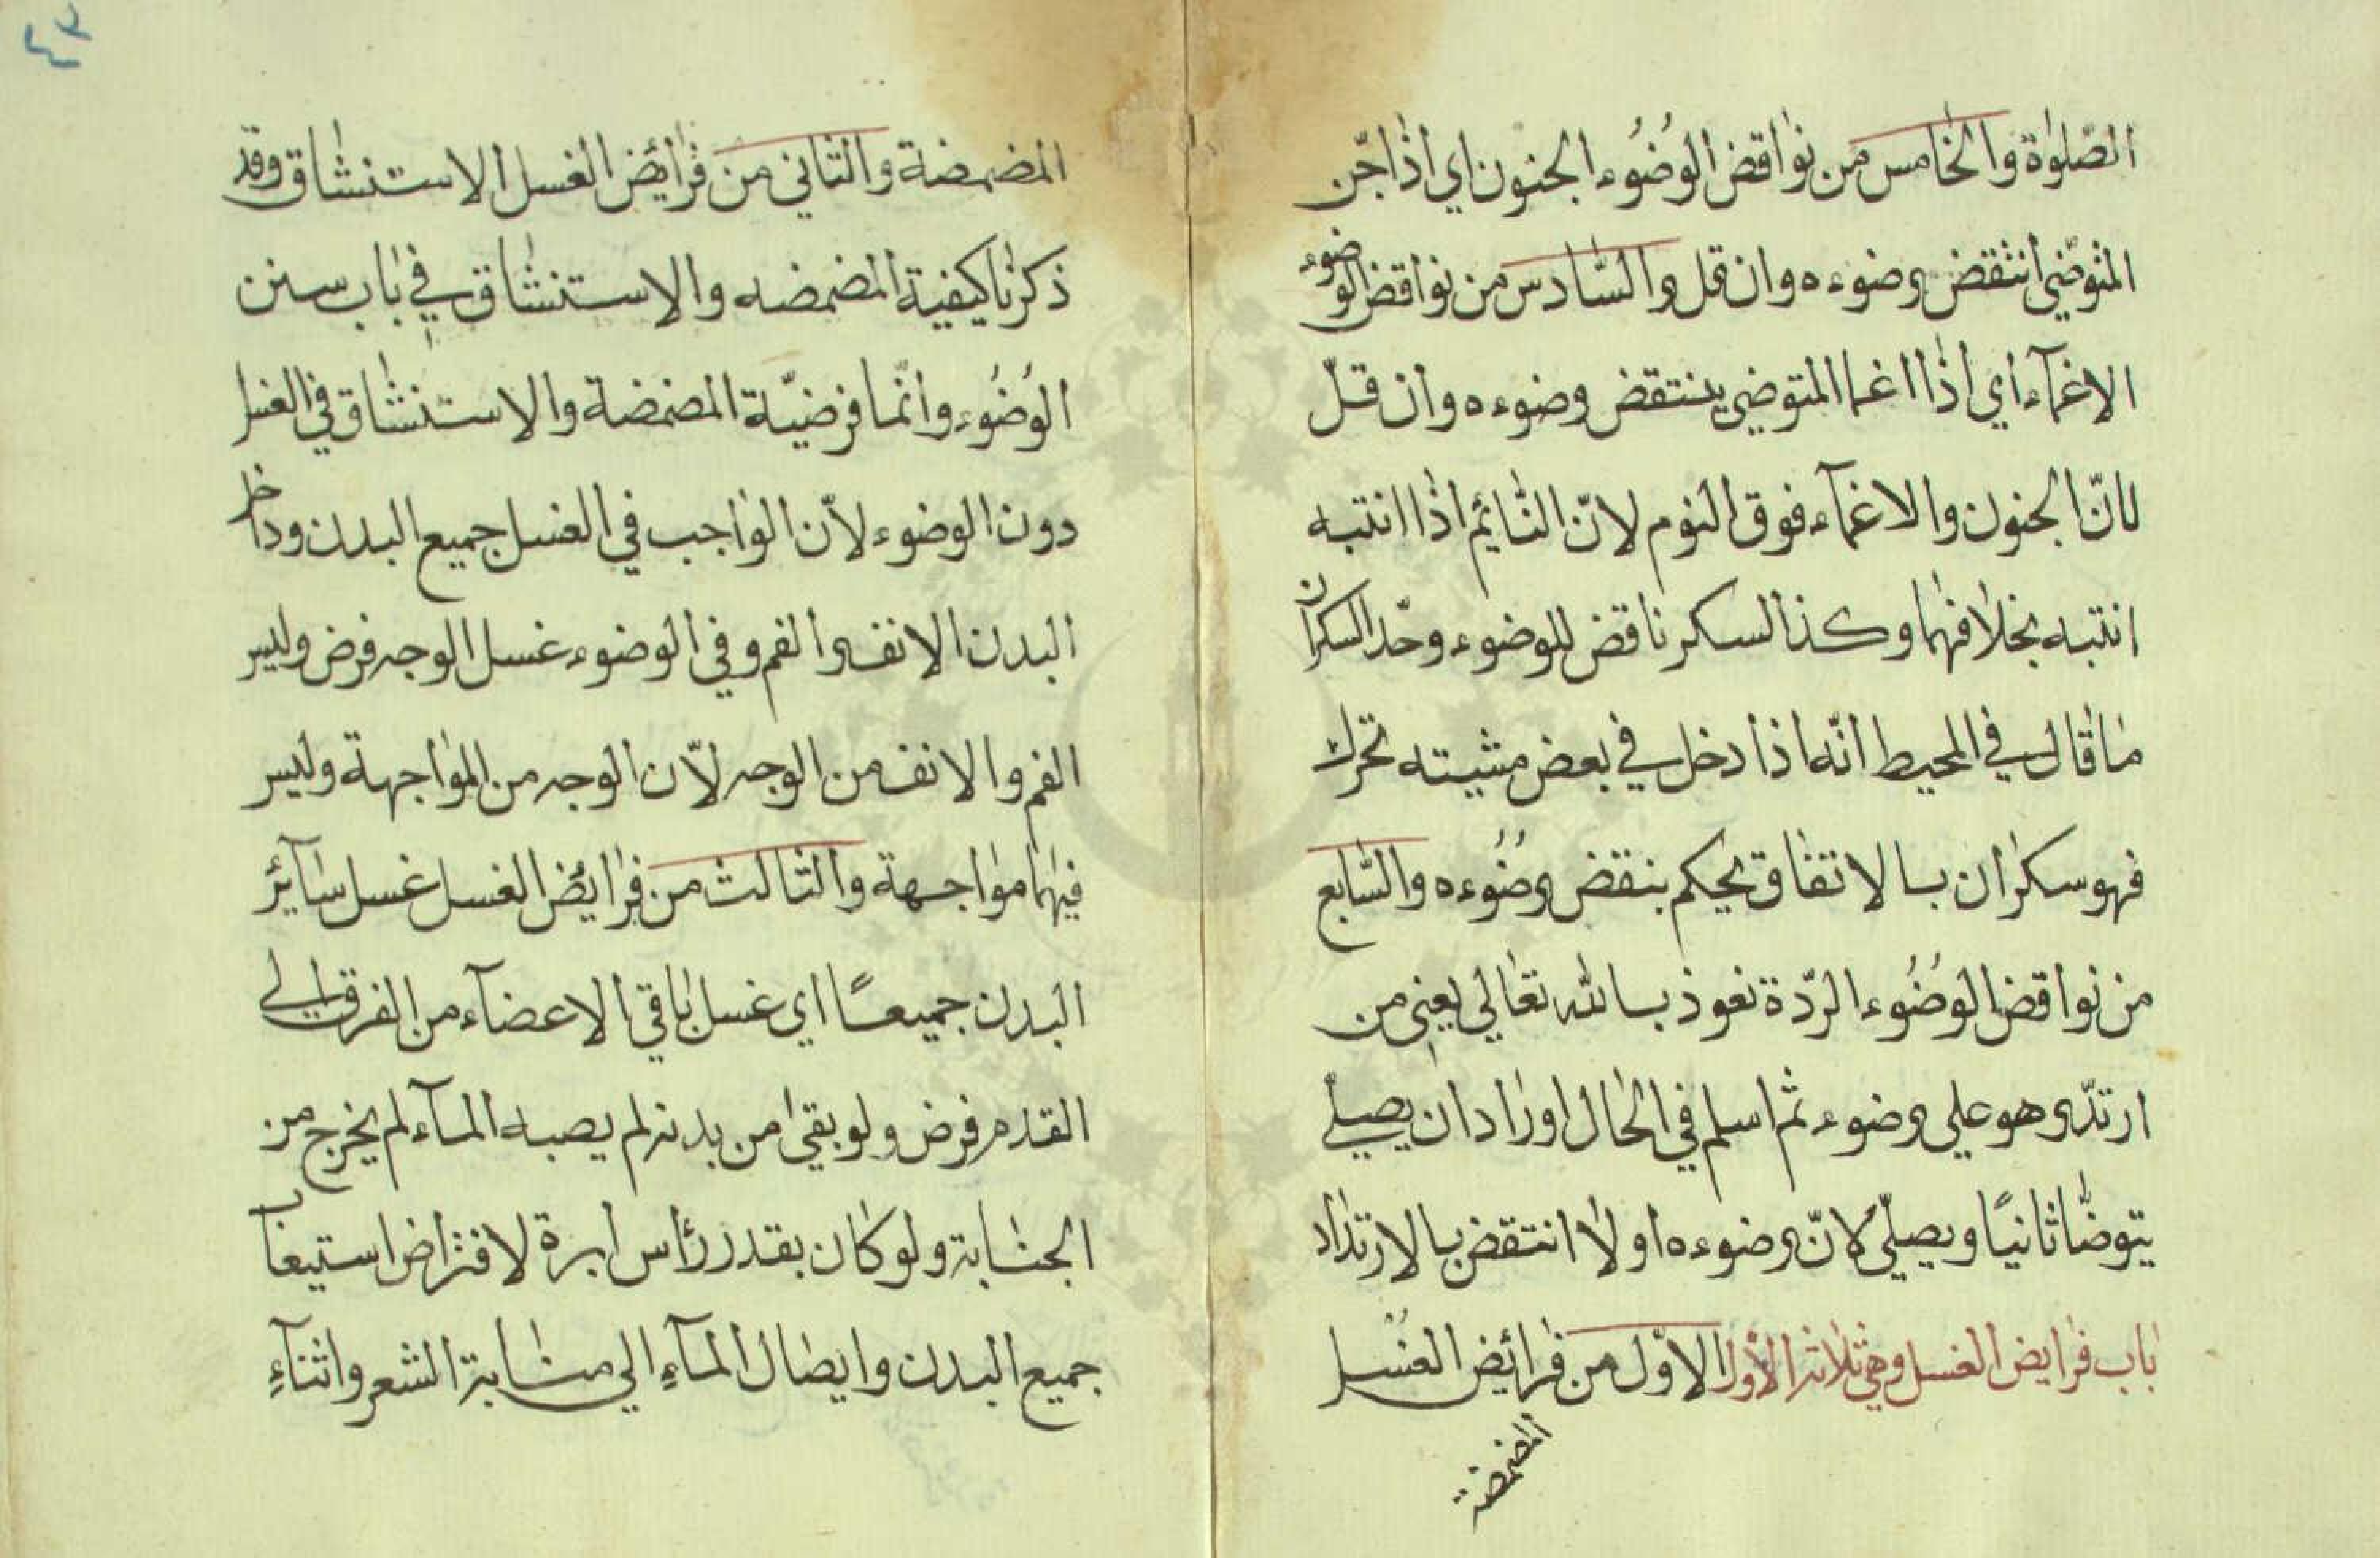 الصّلوٰة والخامس من نواقض الوُضُوء الجنون اي اذا جّن
المتوضّي انتقض وضوءه وان قل والسّادس من نواقض الوضوء
الاغمآء اي اذا اغما المتوضي ينتقض وضوءه وان قلّ
لانّ الجنون والاغمآء فوق النوم لانّ النّائم اذا انتبه
انتبه بخلافهما وكذا السكر ناقض للوضوء وحدّ السكران
ما قال في المحيط انّه اذا دخل في بعض مشيته تحرك
فهو سكران بالاتفاق يحكم بنقض وضُوءه والسّابع
من نواقض الوُضُوء الردّة نعوذ بالله تعالي يعني من
ارتدّ وهو علي وضوء ثم اسلم في الحال او راد ان يصلّي
يتوضّأ ثانيًا ويصلّي لانّ وضوءه اولا انتقض بالارتداد
باب فرايض الغسل وهي ثلاثة الاوّل الاوّل من فرائض الغسل
المضمضة
٤٣
المضمضة والثاني من فرائض الغسل الاستنشاق وقد
ذكرنا كيفية المضمضه والاستنشاق في باب سنن
الوُضُوء وانّما فرضيّة المضمضة والاستنشاق في الغسل
دون الوضوء لانّ الواجب في الغسل جميع البدن وداخل
البدن الانف والفم وفي الوضوء غسل الوجه فرض وليس
الفم والانف من الوجه لانّ الوجه من المواجهة وليس
فيهما مواجهة والثالث من فرايض الغسل غسل سآئر
البدن جميعًا اي غسل باقي الاعضآء من الفرق الي
القدم فرض ولو بقي من بدنه لم يصبه المآء لم يخرج من
الجنابة ولو كان بقدر رأس ابرة لافتراض استيعاب
جميع البدن وايصال المآءِ الي منابة الشعر واثنآءِ